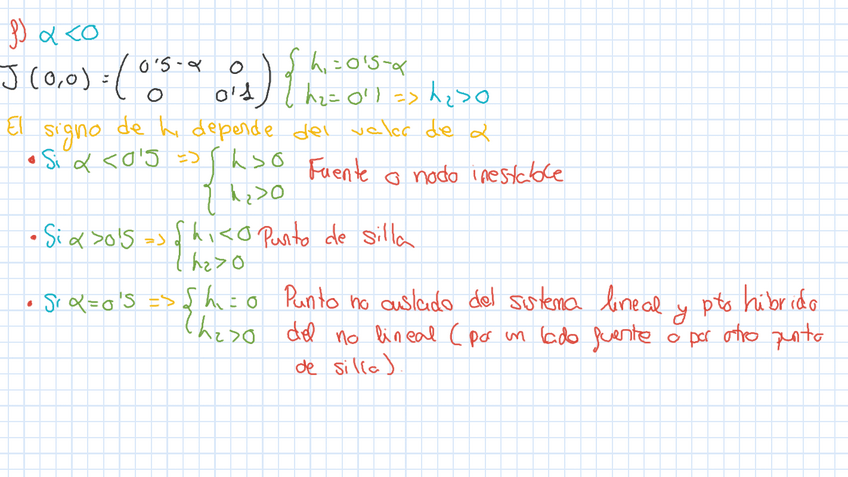 f) α<0
J(0,0) = ( 0'5-α 0 0 0'1 ) { h₁=0'5-α h₂=0'1 => h₂>0
El signo de h₁ depende del valor de α
• Si α<0'5 => { h>0 Fuente o nodo inestable
h₂>0
• Si α>0'5 => { h₁<0 Punto de silla
h₂>0
• Si α=0'5 => { h₁=0 Punto no aislado del sistema lineal y pto híbrido
h₂>0 del no lineal (por un lado fuente o por otro punto
de silla).